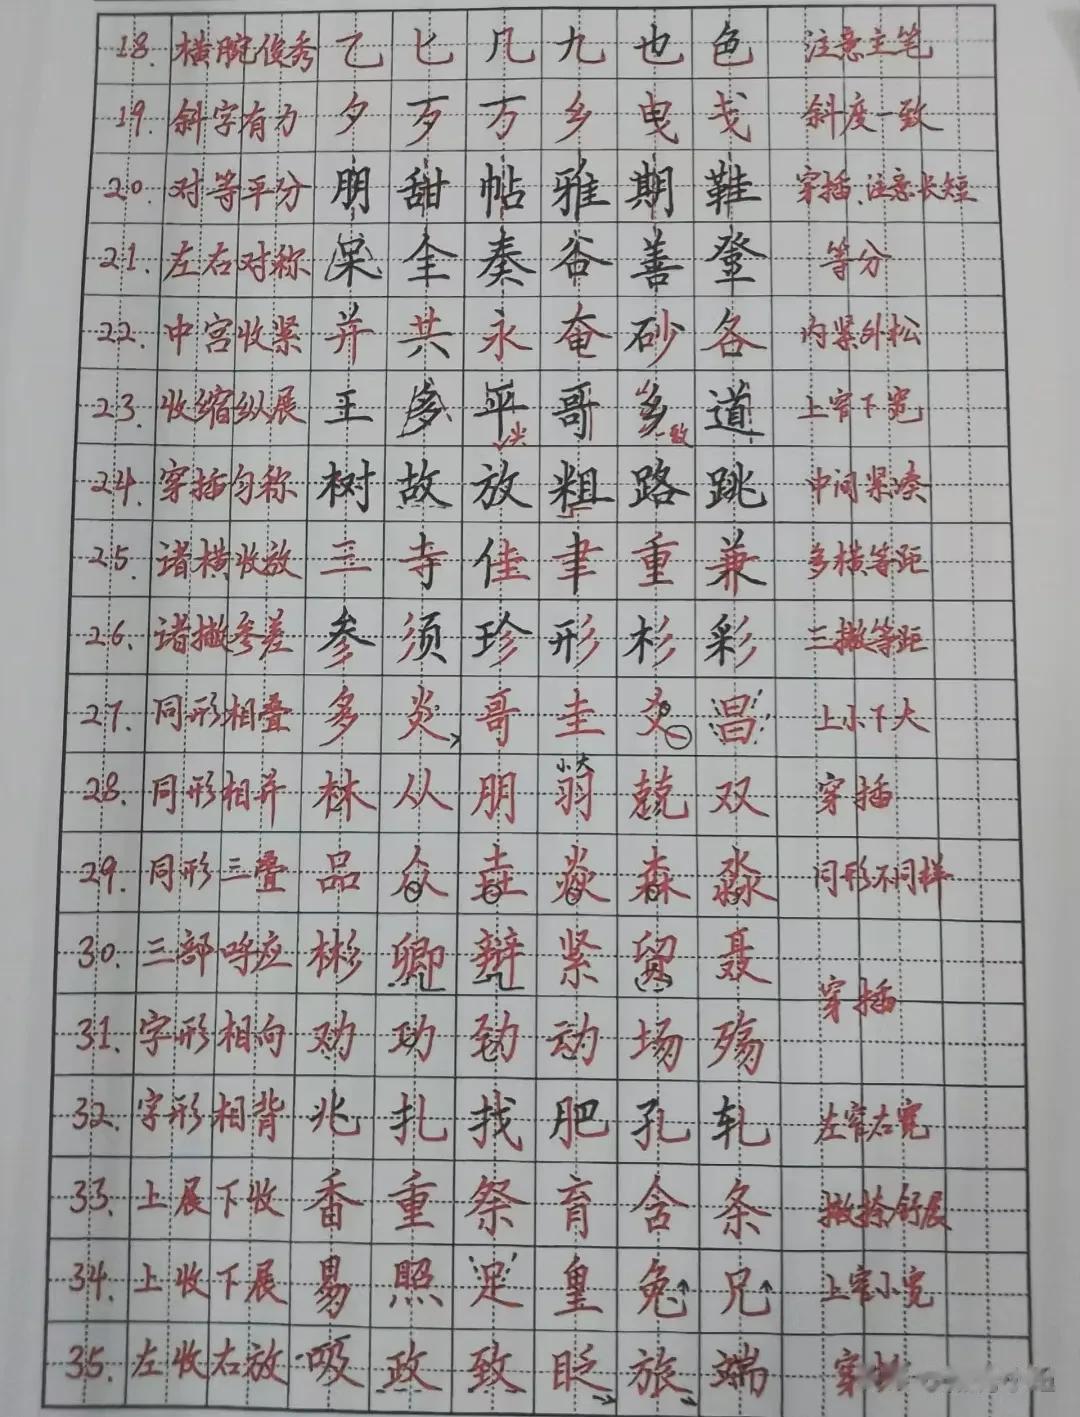 18. 横腕俊秀 乙 匕 几 九 也 色 注意主笔
19. 斜字有方 夕 歹 万 乡 曳 戋 斜度一致
20. 对等平分 朋 甜 帖 雅 期 鞋 穿插、注意长短
21. 左右对称 杲 全 奏 谷 善 登 等分
22. 中宫收紧 并 共 永 奄 砂 各 内紧外松
23. 收缩纵展 王 多 平 哥 乡 道 上窄下宽
24. 穿插匀称 树 故 放 粗 路 跳 中间紧凑
25. 诸横收放 三 寺 佳 聿 重 兼 多横等距
26. 诸撇参差 参 须 珍 形 杉 彩 三撇等距
27. 同形相叠 多 炎 哥 圭 爻 昌 上小下大
小大
28. 同形相并 林 从 朋 羽 兢 双 穿插
29. 同形三叠 品 众 垚 焱 森 淼 同形不同样
30. 三部呼应 彬 卿 辩 紧 留 聂
穿插
31. 字形相向 劝 功 劲 动 场 殇
32. 字形相背 兆 扎 找 肥 孔 轧 左窄右宽
33. 上展下收 番 重 祭 育 含 条 撇捺舒展
34. 上收下展 易 照 足 皇 兔 兄 上窄小宽
35. 左收右放 吸 政 致 眨 旅 端 穿